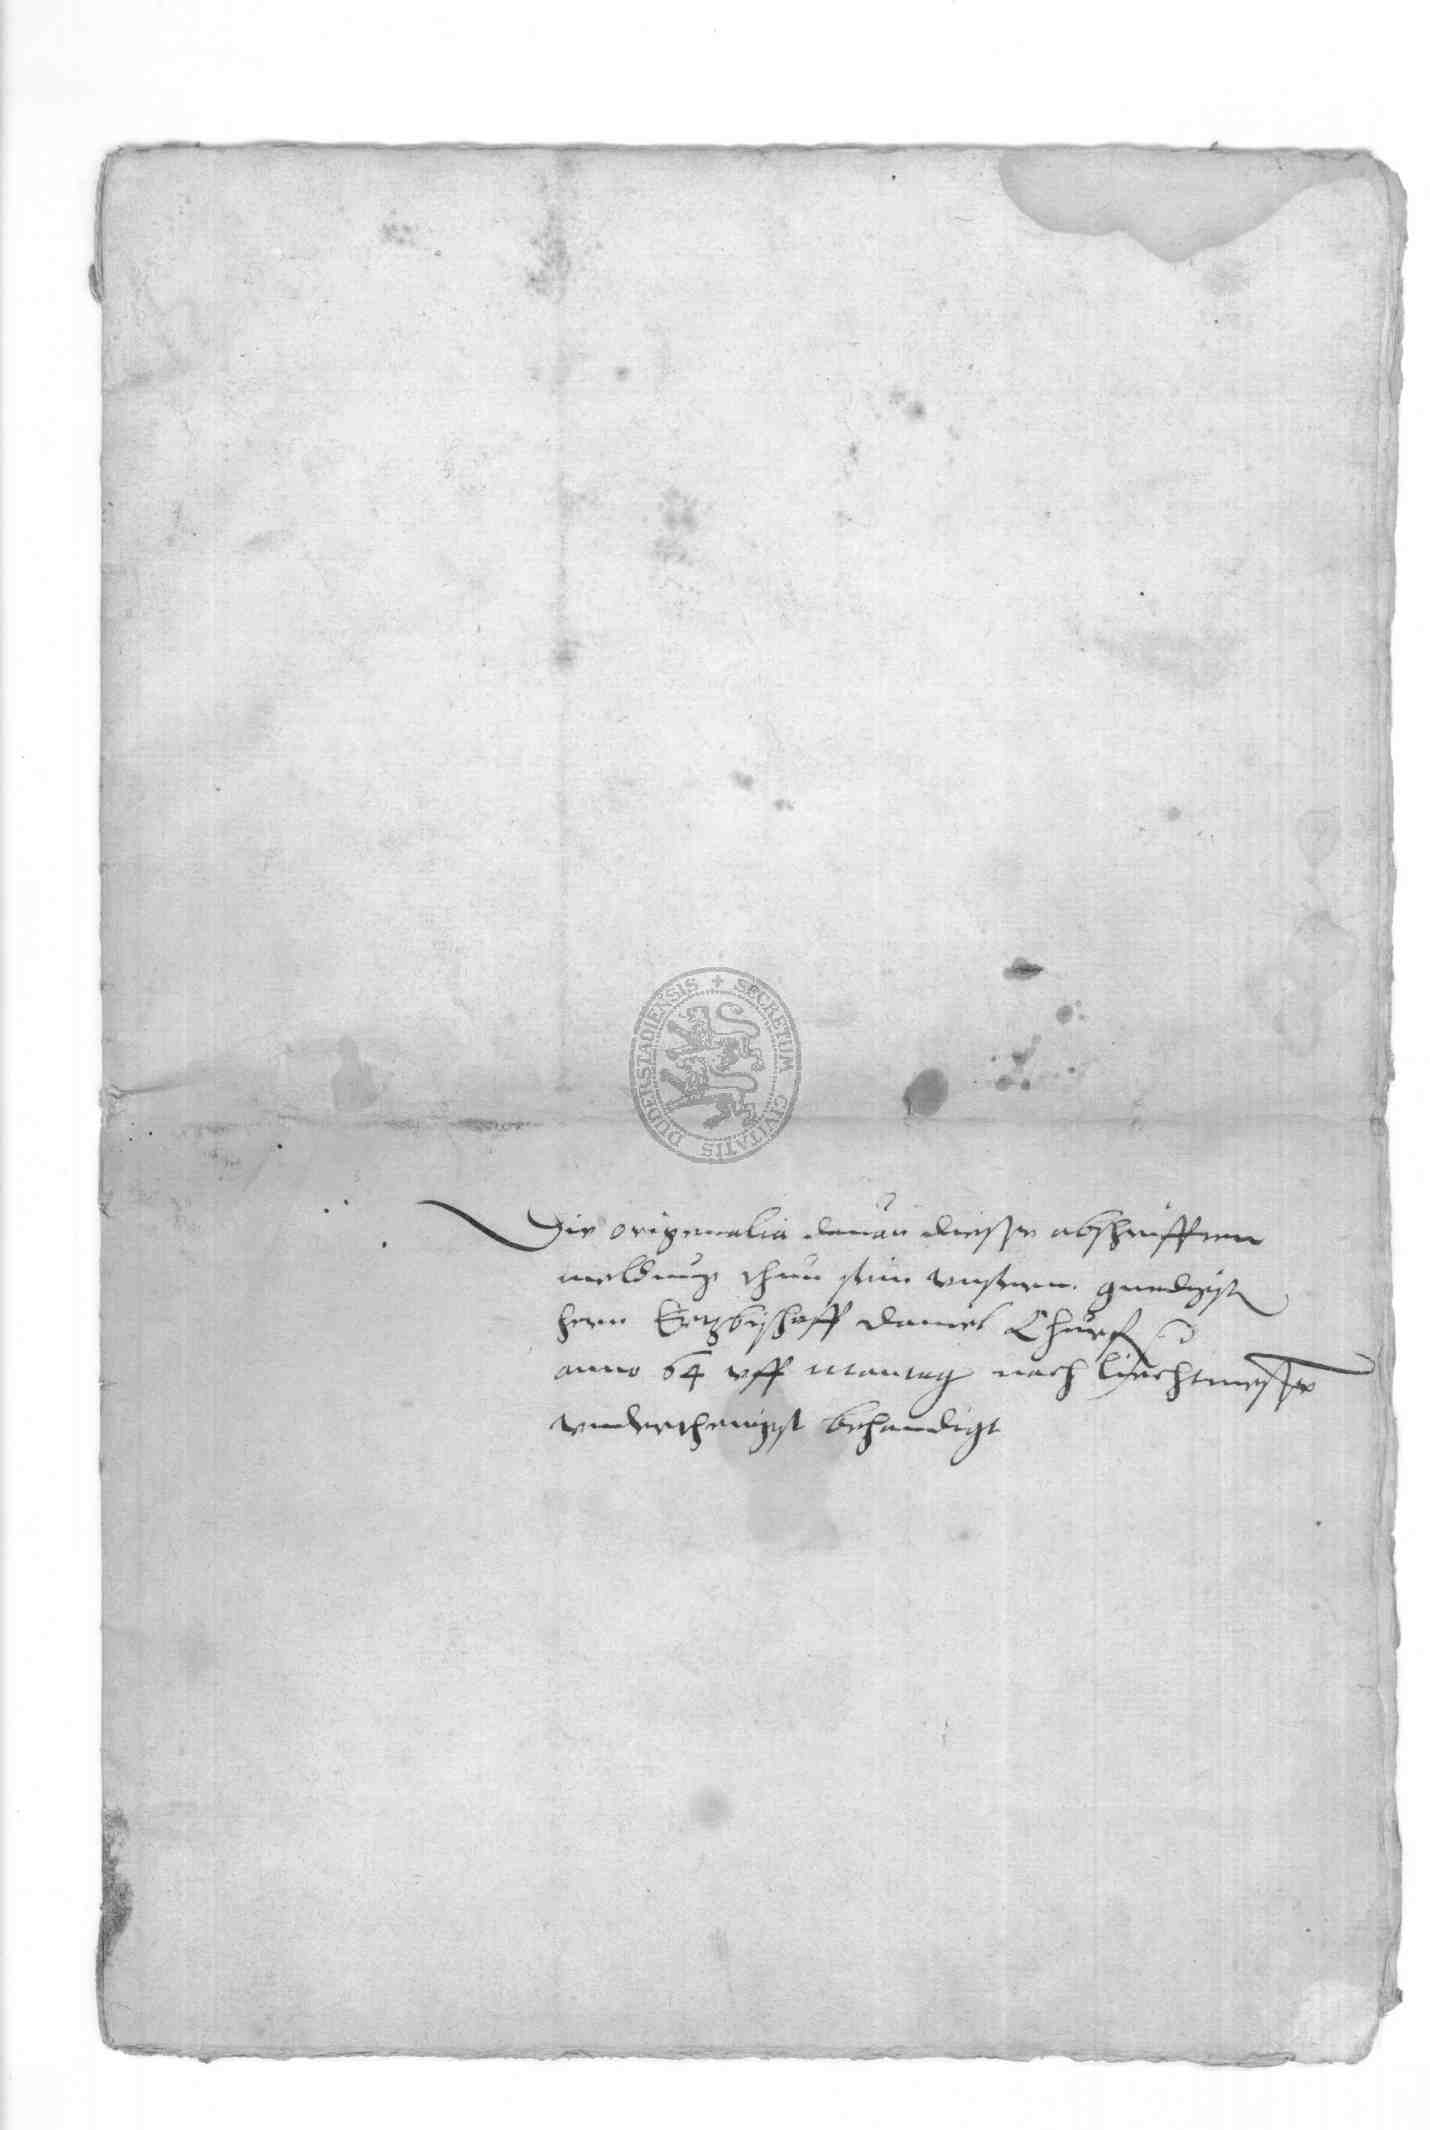 SECRETUM CIVITATIS DUDERSTADIENSIS
Die origenalia dauan diesse abschrifften
meldung thun sein unserm gnedigst
hern Ertzbischoff Daniel Churf
anno 64 uff Montag nach liechtmesse
underthenigst behandigt